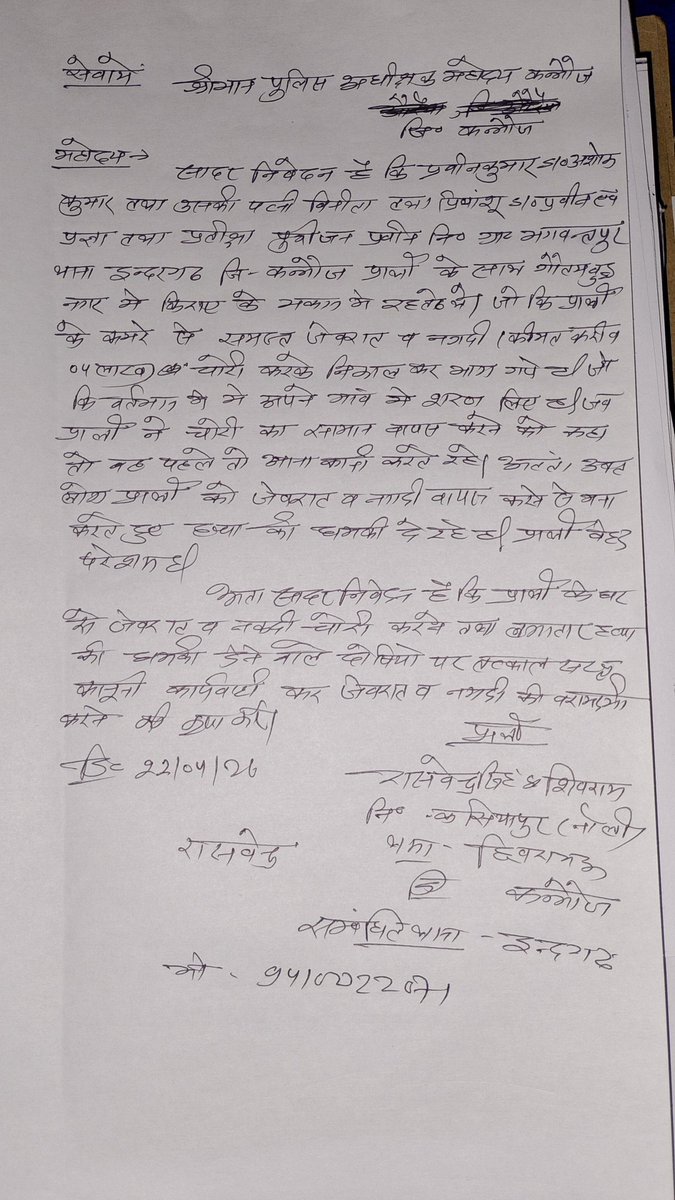 सेवामें श्रीमान पुलिस अधीक्षक महोदय कन्नौज
जि० कन्नौज
महोदय→
सादर निवेदन है कि प्रवीनकुमार S/० अशोक
कुमार तथा उसकी पत्नी विनीता तथा प्रियांशू S/० प्रवीन एवं
तथा प्रतीक्षा पुत्रीजन प्रवीन नि० ग्राम भगवन्तपुर
थाना इन्दरगढ जि- कन्नौज प्रार्थी के साथ गौतमबुद्ध
नगर मे किराए के मकान मे रहते थे। जो कि प्रार्थी
के कमरे से समस्त जेवरात व नगदी (कीमत करीब
०५ लाख) चोरी करके निकाल कर भाग गये है। जो
कि वर्तमान मे अपने गांव मे शरण लिए है। जब
प्रार्थी ने चोरी का सामान वापस करने को कहा
तो वह पहले तो आना कानी करते रहे। अतंतः उक्त
लोग प्रार्थी को जेवरात व नगदी वापस करने से मना
करते हुए हत्या की धमकी दे रहे है। प्रार्थी बेहद
परेशान है।
अतः सादर निवेदन है कि प्रार्थी के घर
से जेवरात व नकदी चोरी करने तथा लगातार हत्या
की धमकी देने वाले दोषियो पर तत्काल
कानूनी कार्यवाही कर जेवरात व नगदी की बरामदगी
करने की कृपा करें।
प्रार्थी
दि० 22/04/26
S/० शिवराम
नि० - कसियापुर (नौली)
थाना - छिबरामऊ
कन्नौज
सम्बंधित थाना - इन्दरगढ
मो -